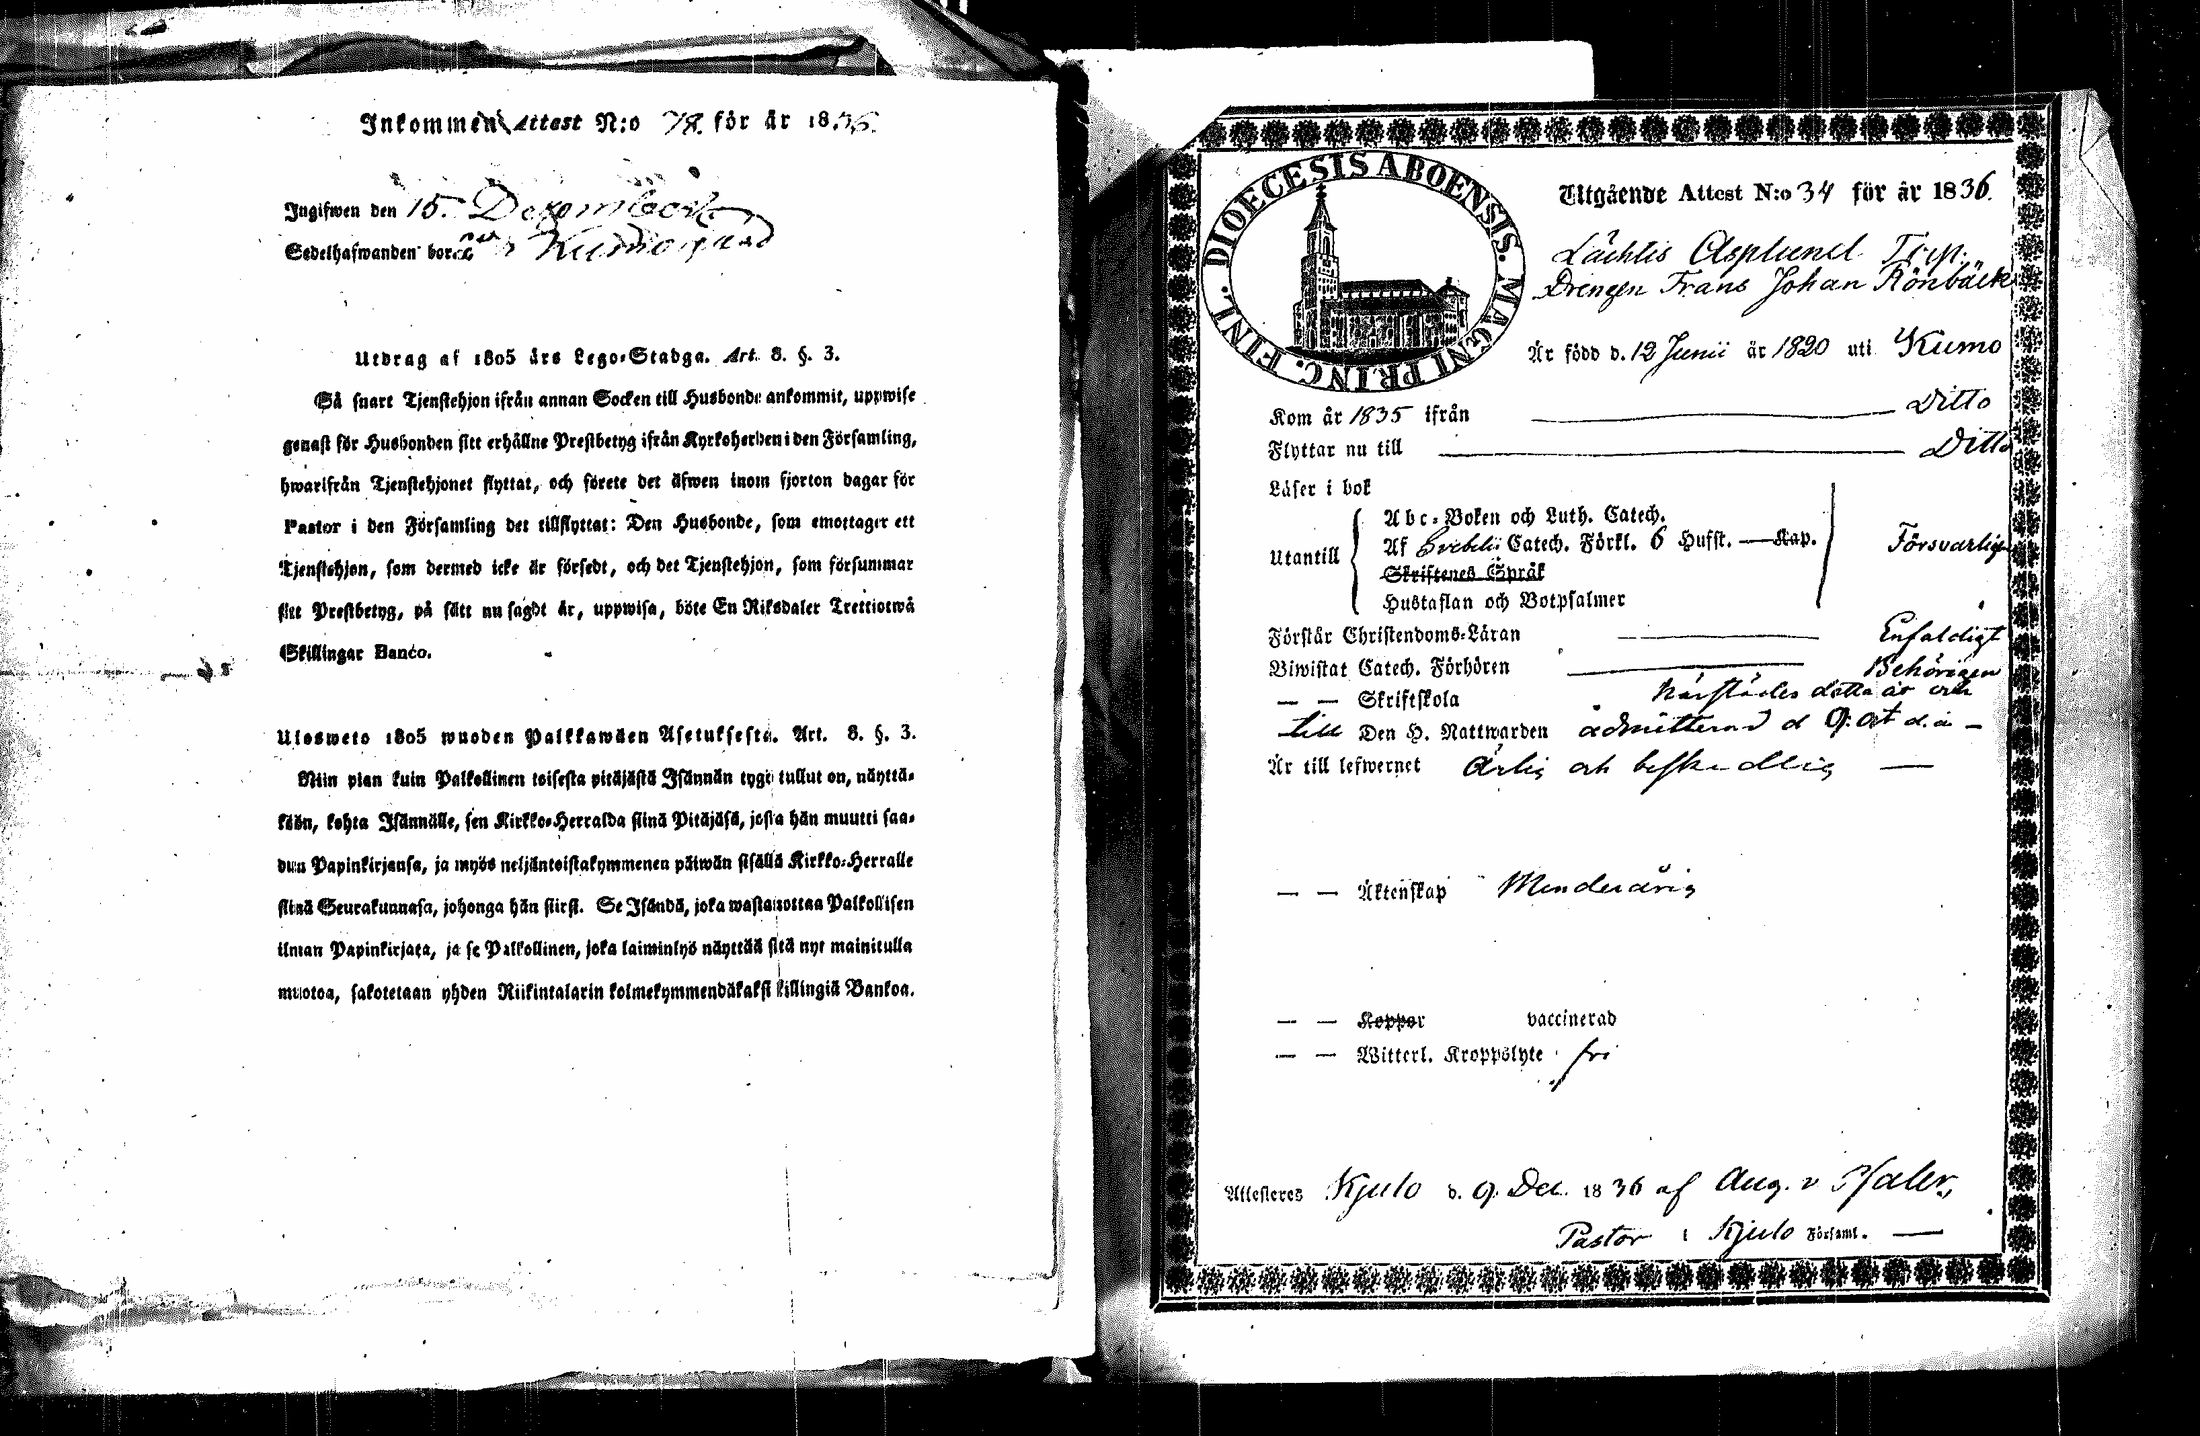 Inkommen Attest N:o 78. för år 1836.
Ingifwen den 15. December
Sedelhafwanden bor Kumogård
Utdrag af 1805 års Lego-Stadga. Art. 8. §. 3.
Så snart Tjenstehjon ifrån annan Socken till Husbonde ankommit, uppwise
genast för Husbonden sitt erhållne Prestbetyg ifrån Kyrkoherden i den Församling,
hwarifrån Tjenstehjonet flyttat, och förete det äfwen inom fjorton dagar för
Pastor i den Församling det tillflyttat: Den Husbonde, som emottager ett
Tjenstehjon, som dermed icke är försedt, och det Tjenstehjon, som försummar
sitt Prestbetyg, på sätt nu sagdt är, uppwisa, böte En Riksdaler Trettiotwå
Skillingar Banco.
Ulosweto 1805 wuoden Palkkawäen Asetuksesta. Art. 8. §. 3.
Niin pian kuin Palkollinen toisesta pitäjästä Isännän tygö tullut on, näyttä-
köön, kohta Isännälle, sen Kirkko-Herralda siinä Pitäjäsä, josta hän muutti saa-
dun Papinkirjansa, ja myös neljäntoistakymmenen päiwän sisällä Kirkko-Herralle
siinä Seurakunnasa, johonga hän siirsi. Se Isändä, joka wastanottaa Palkollisen
ilman Papinkirjata, ja se Palkollinen, joka laiminlyö näyttää sitä nyt mainitulla
muotoa, sakotetaan yhden Riikintalarin kolmekymmendäkaksi killingiä Bankoa.
DIOECESIS ABOENSIS. MAGNI PRINC. FINL.
Utgående Attest N:o 34 för år 1836.
Lächtis Asplund Torp.
Drengen Frans Johan Rönbäck
Är född d. 12 Junii år 1820 uti Kumo
Kom år 1835 ifrån Ditto
Flyttar nu till Ditto
Läser i bok
Utantill
Abc-Boken och Luth. Catech.
Af Svebelii Catech. Förkl. 6 Hufst. — Kap.
Skriftenes Språk
Hustaflan och Botpsalmer
Försvarligt
Förstår Christendoms-Läran Enfaldigt
Biwistat Catech. Förhören Behörigen
— — Skriftskola härstädes detta år och
till Den H. Nattwarden admitterad d 9 Oct d. å —
Är till lefwernet Ärlig och beskedlig —
— — Äktenskap Minderårig
— — Koppor vaccinerad
— — Witterl. Kroppslyte fri
Attesteres Kjulo d. 9 Dec. 1836 af Aug. v
Pastor i Kjulo Församl. —